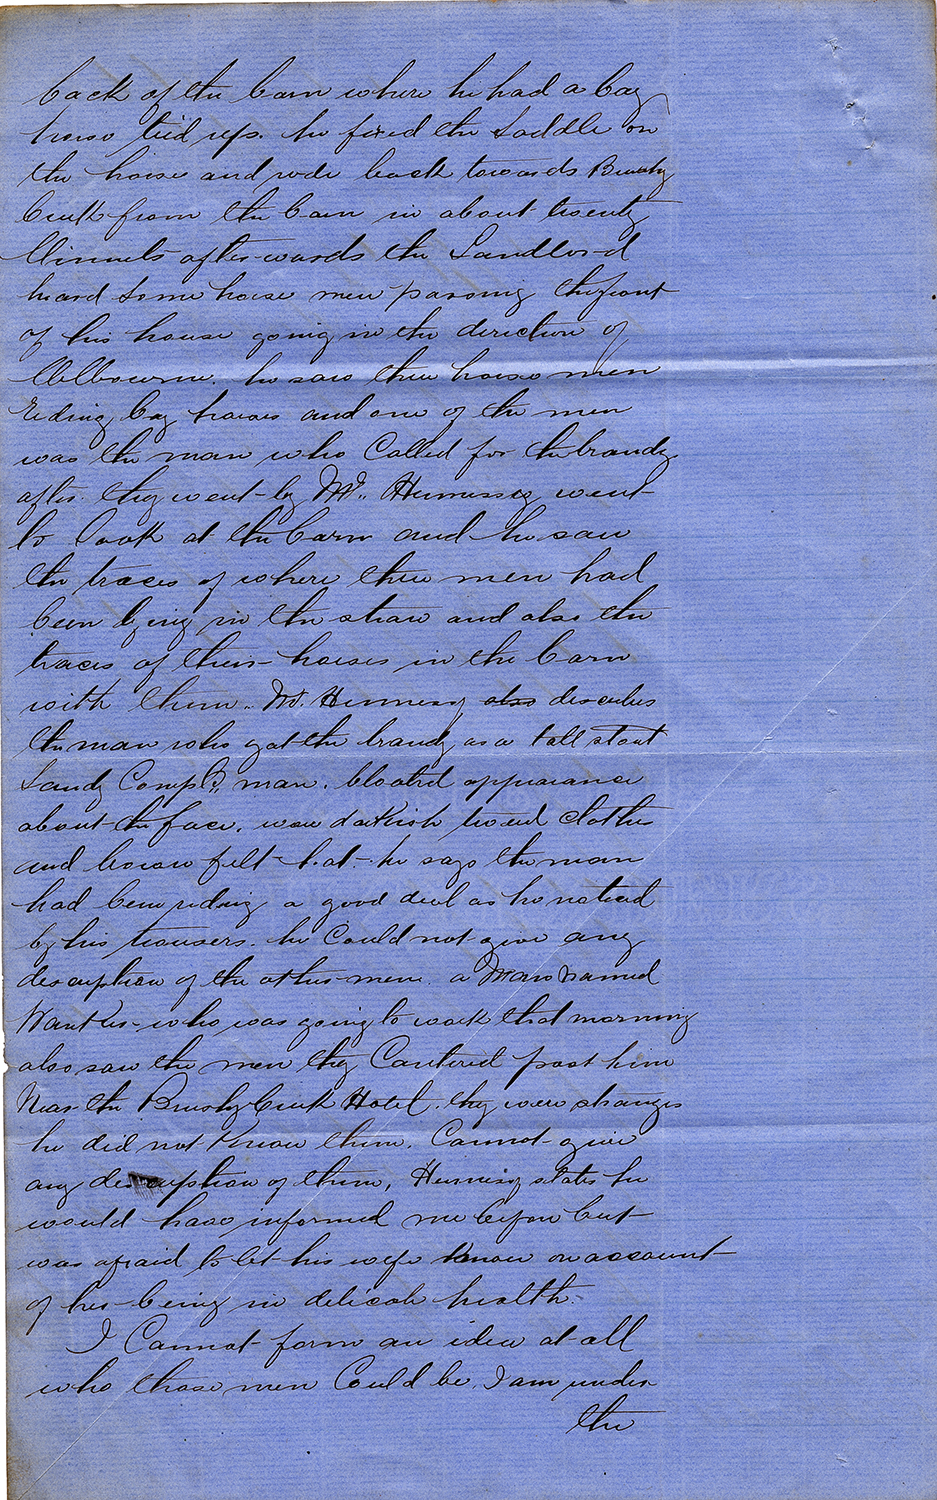 back of the barn where he had a bay
horse tied up. he fixed the Saddle on
the horse and rode back towards Brushy
Creek from the barn in about twenty
Minuets afterwards the Landlord
heard some horse men passing the front
of his house going in the direction of
Melbourne. he saw three horse men
riding bay horses and one of the men
was the man who Called for the brandy
after they went by Mr. Hennessy went
to look at the barn and he saw
the traces of where three men had
been lying in the straw and also the
traces of their horses in the barn
with them. Mr. Hennessy also describes
the man who got the brandy as a tall stout
Sandy Compl'd, man. bloated appearance
about the face. wore darkish tweed clothes
and brown felt hat. he says the man
had been riding a good deal as he noticed
by his trousers. he Could not give any
description of the other men. a Man named
who was going to work that morning
also saw the men they Cantered past him
Near the Brushy Creek Hotel. they were strangers
he did not Know them. Cannot give
any description of them, Hennessy states he
would have informed me before but
was afraid to let his wife Know on account
of her being in delicate health.
I Cannot form an idea at all
who those men Could be. I am under
the